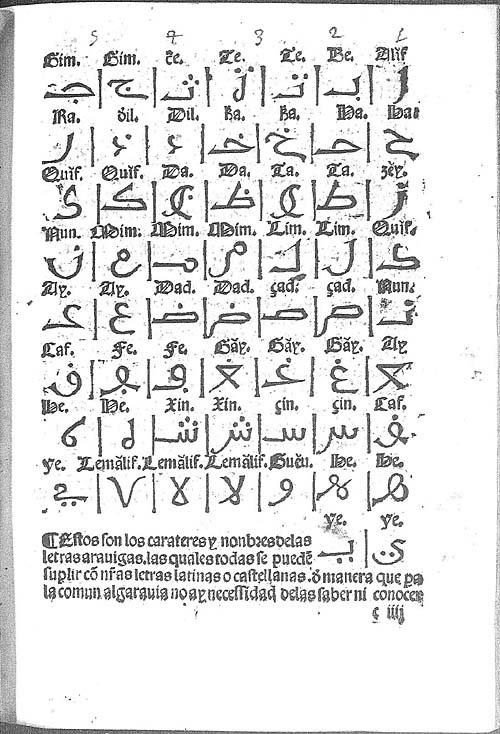 5 4 3 2 1
Gim. Gim. c̃e. Te. Te. Be. Alif
جـ ج ثـ ت تـ بـ ا
Ra. dil. Dil. ha. ha. Ha. Ha:
ر ذ د خـ خ حـ ح
Quif. Quif. Da. Da. Ta. Ta. zey.
ك كـ ظ ظ ط ط ز
Nun. Mim: Mim. Mim. Lim. Lim. Quif.
ن م ـمـ مـ لـ ل كـ
Ay. Ay. Dad. Dad. çad. çad. Nun:
عـ ع ضـ ض صـ ص نـ
Caf. Fe. Fe. Gãy. Gãy. Gãy. Ay
ف ـغـ غـ غ ـعـ
He. He. Xin. Xin. çin. çin. Caf.
ه شـ ش سـ س
ye. Lemãlif. Lemãlif. Lemãlif. Guẽu. He. He.
لا لا و ـهـ هـ
ye. ye.
يـ ي
¶Estos son los carateres y nonbres delas
letras arauigas. las quales todas se puedẽ
suplir cõ nr̃as letras latinas o castellanas. d̃ manera que pa
la comun algarauia no ay necessidad delas saber ni conocer
ç iiij